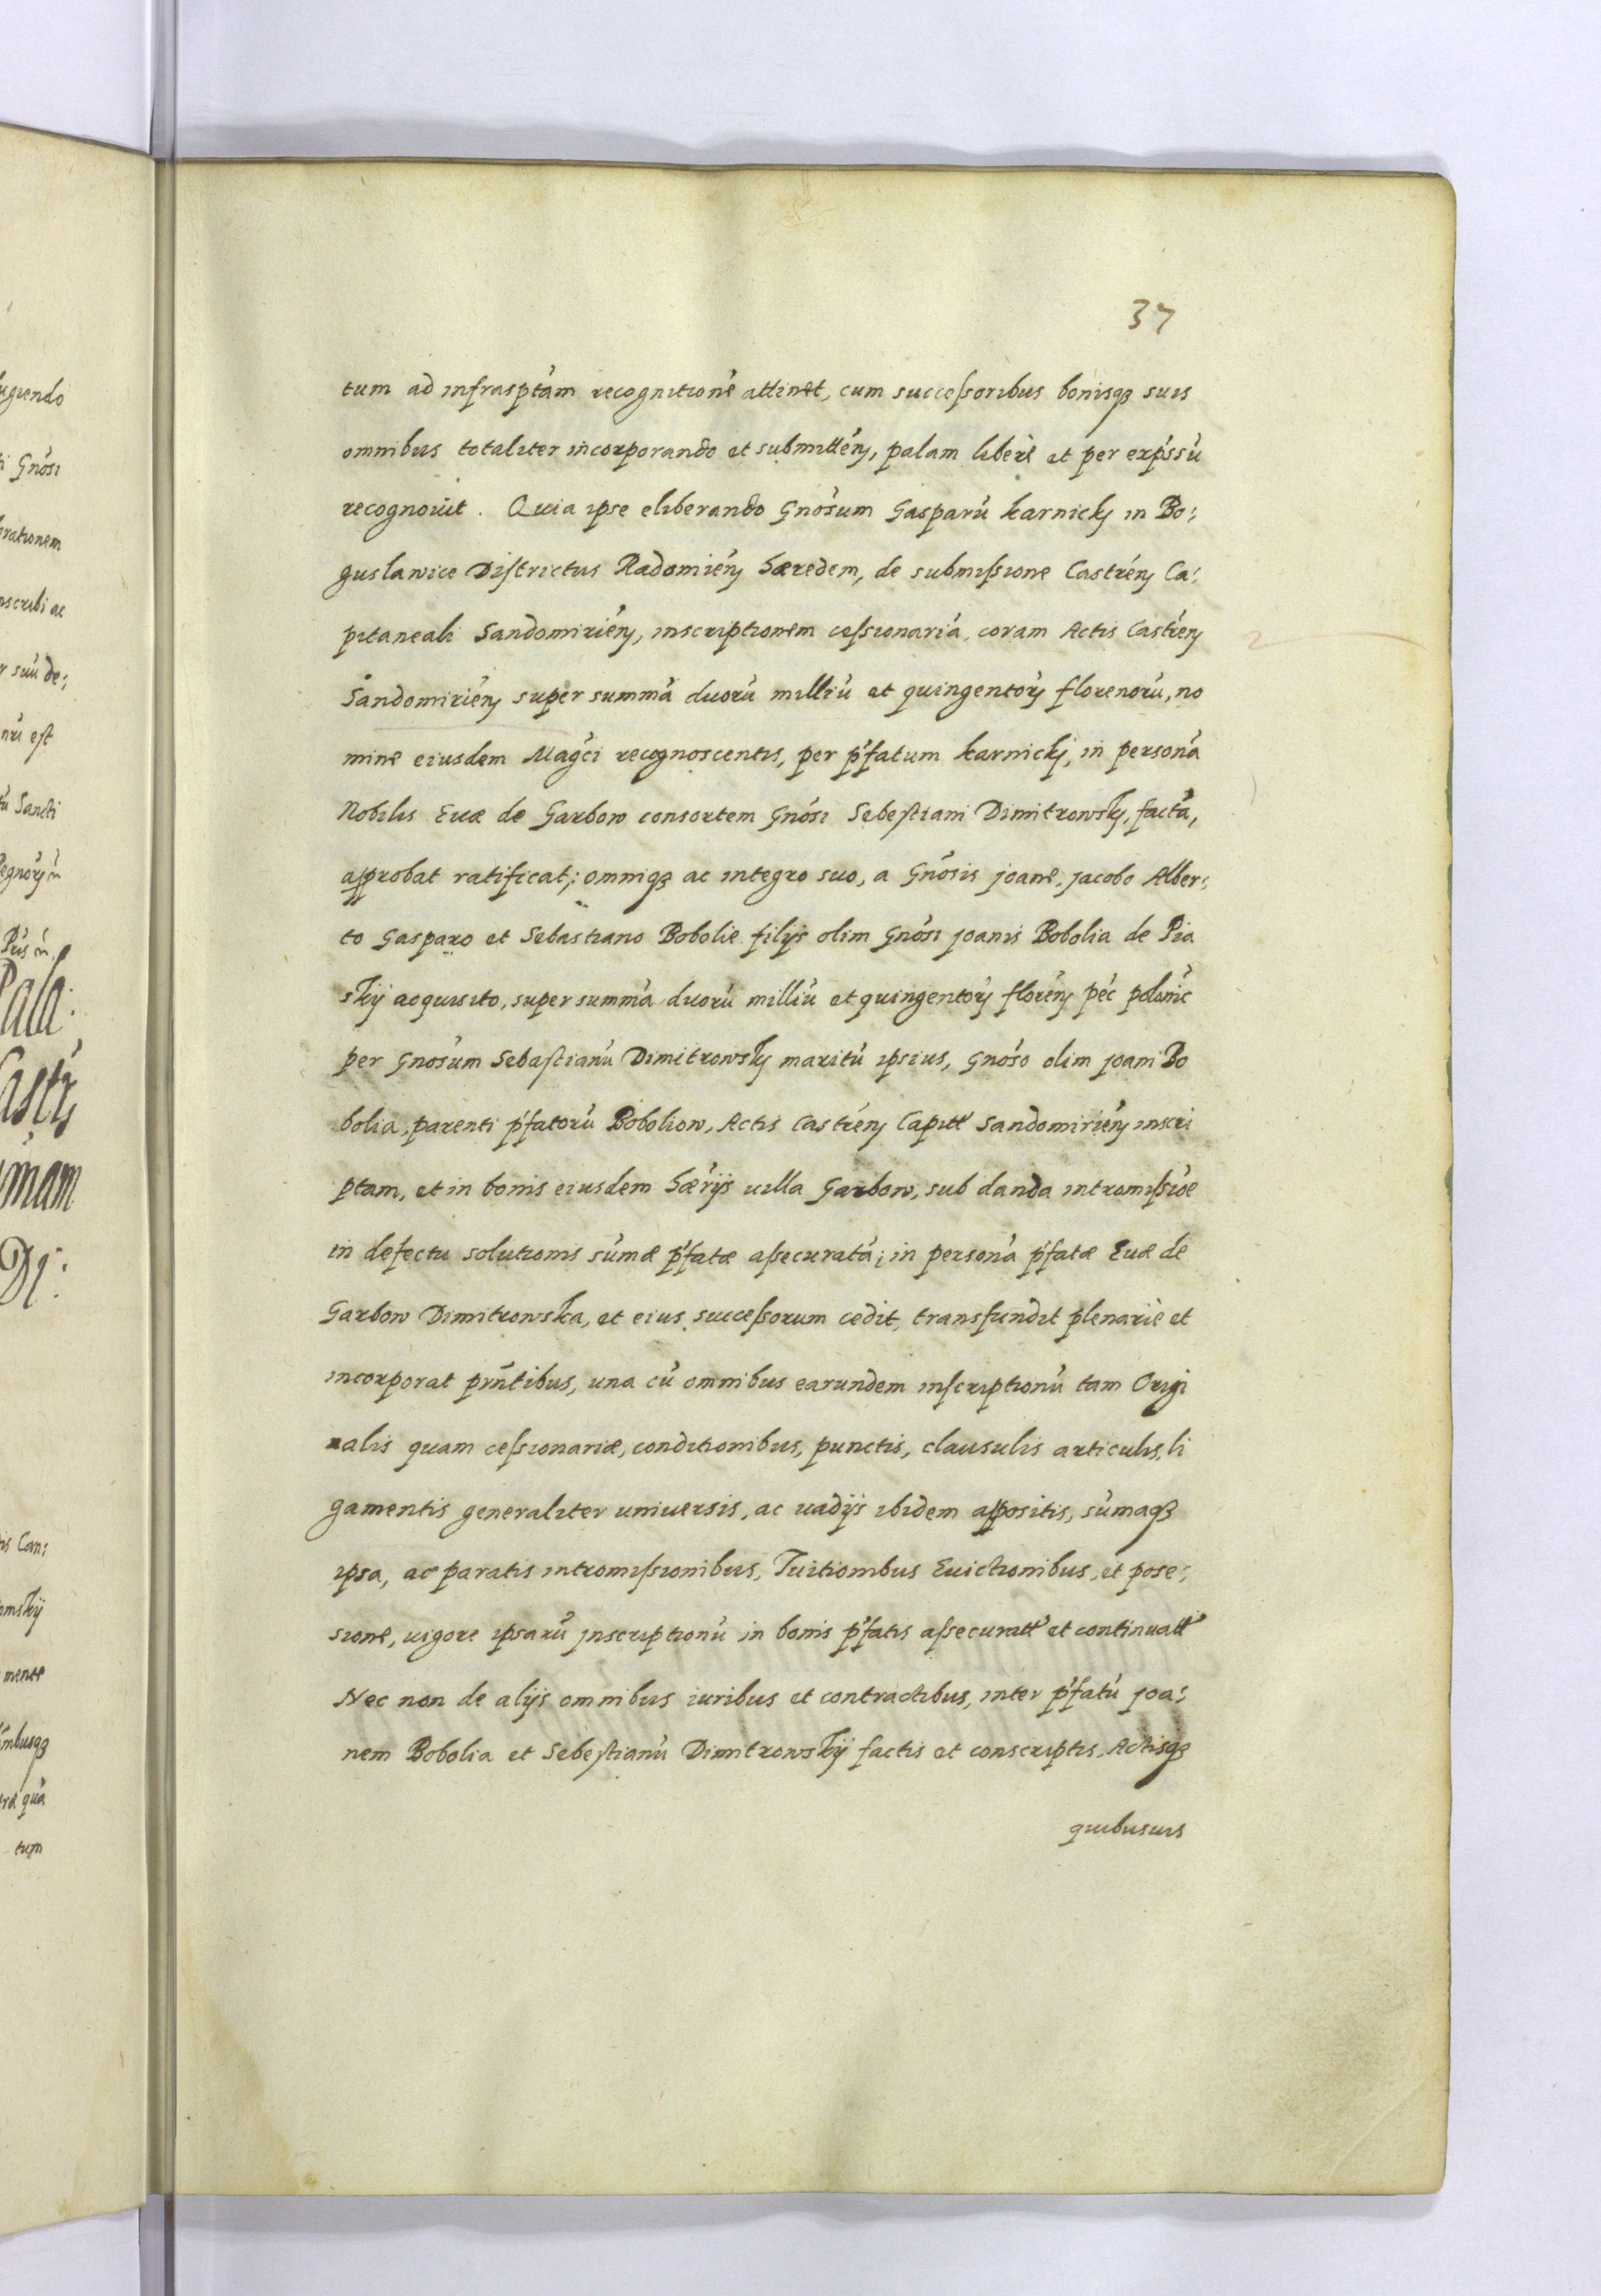 37
tum ad infrasptam recognitione attinet, cum successoribus bonisqꝫ suis
omnibus totaliter incorporando et submitteń, palam liberè et per expssu
recognouit. Quia ipse eliberando Gnosum Gasparu karnickj in Bo:
guslawice Districtus Radomień hæredem, de submissione Castreń Ca:
pitaneali Sandomirień, inscriptionem cessionaria, coram Actis Castreń
Sandomirień super summa duoru milliu et quingentorų florenoru, no
mine eiusdem Magci recognoscentis, per pfatum karnickj, in persona
Nobilis Euæ de Garbow consortem Gnosi Sebestiani Dimitrowskj, facta,
approbat ratificat; omniqꝫ ac integro suo, a Gnosis joane, jacobo Alber:
to Gasparo et Sebastiano Bobolie filijs olim Gnosi joanis Bobolia de Pia
skij acquisito, super summa duoru milliu et quingentorų floreń pec polonic
per Gnosum Sebastianu Dimitrowskj maritu ipsius, Gnoso olim joani Bo
bolia, parenti pfatoru Boboliow, Actis Castreń Capitt Sandomirień inscri
ptam, et in bonis eiusdem hærijs uilla Garbow, sub danda intromissioe
in defectu solutionis sumæ pfatæ assecurata; in persona pfatæ Euæ de
Garbow Dimitrowska, et eius successorum cedit, transfundit plenariè et
incorporat prntibus, una cu omnibus earundem inscriptionu tam Origi
nalis quam cessionariæ, conditionibus, punctis, clausulis articulis, li
gamentis generaliter uniuersis, ac uadijs ibidem appositis, sumaqꝫ
ipsa, ac paratis intromissionibus, Tuitionibus Euictionibus, et pose:
sione, uigore ipsaru jnscriptionu in bonis pfatis assecuratt et continuatt
Nec non de alijs omnibus iuribus et contractibus, inter pfatu joa:
nem Bobolia et Sebestianu Dimitrowskij factis et conscriptis, Actisqꝫ
quibusuis